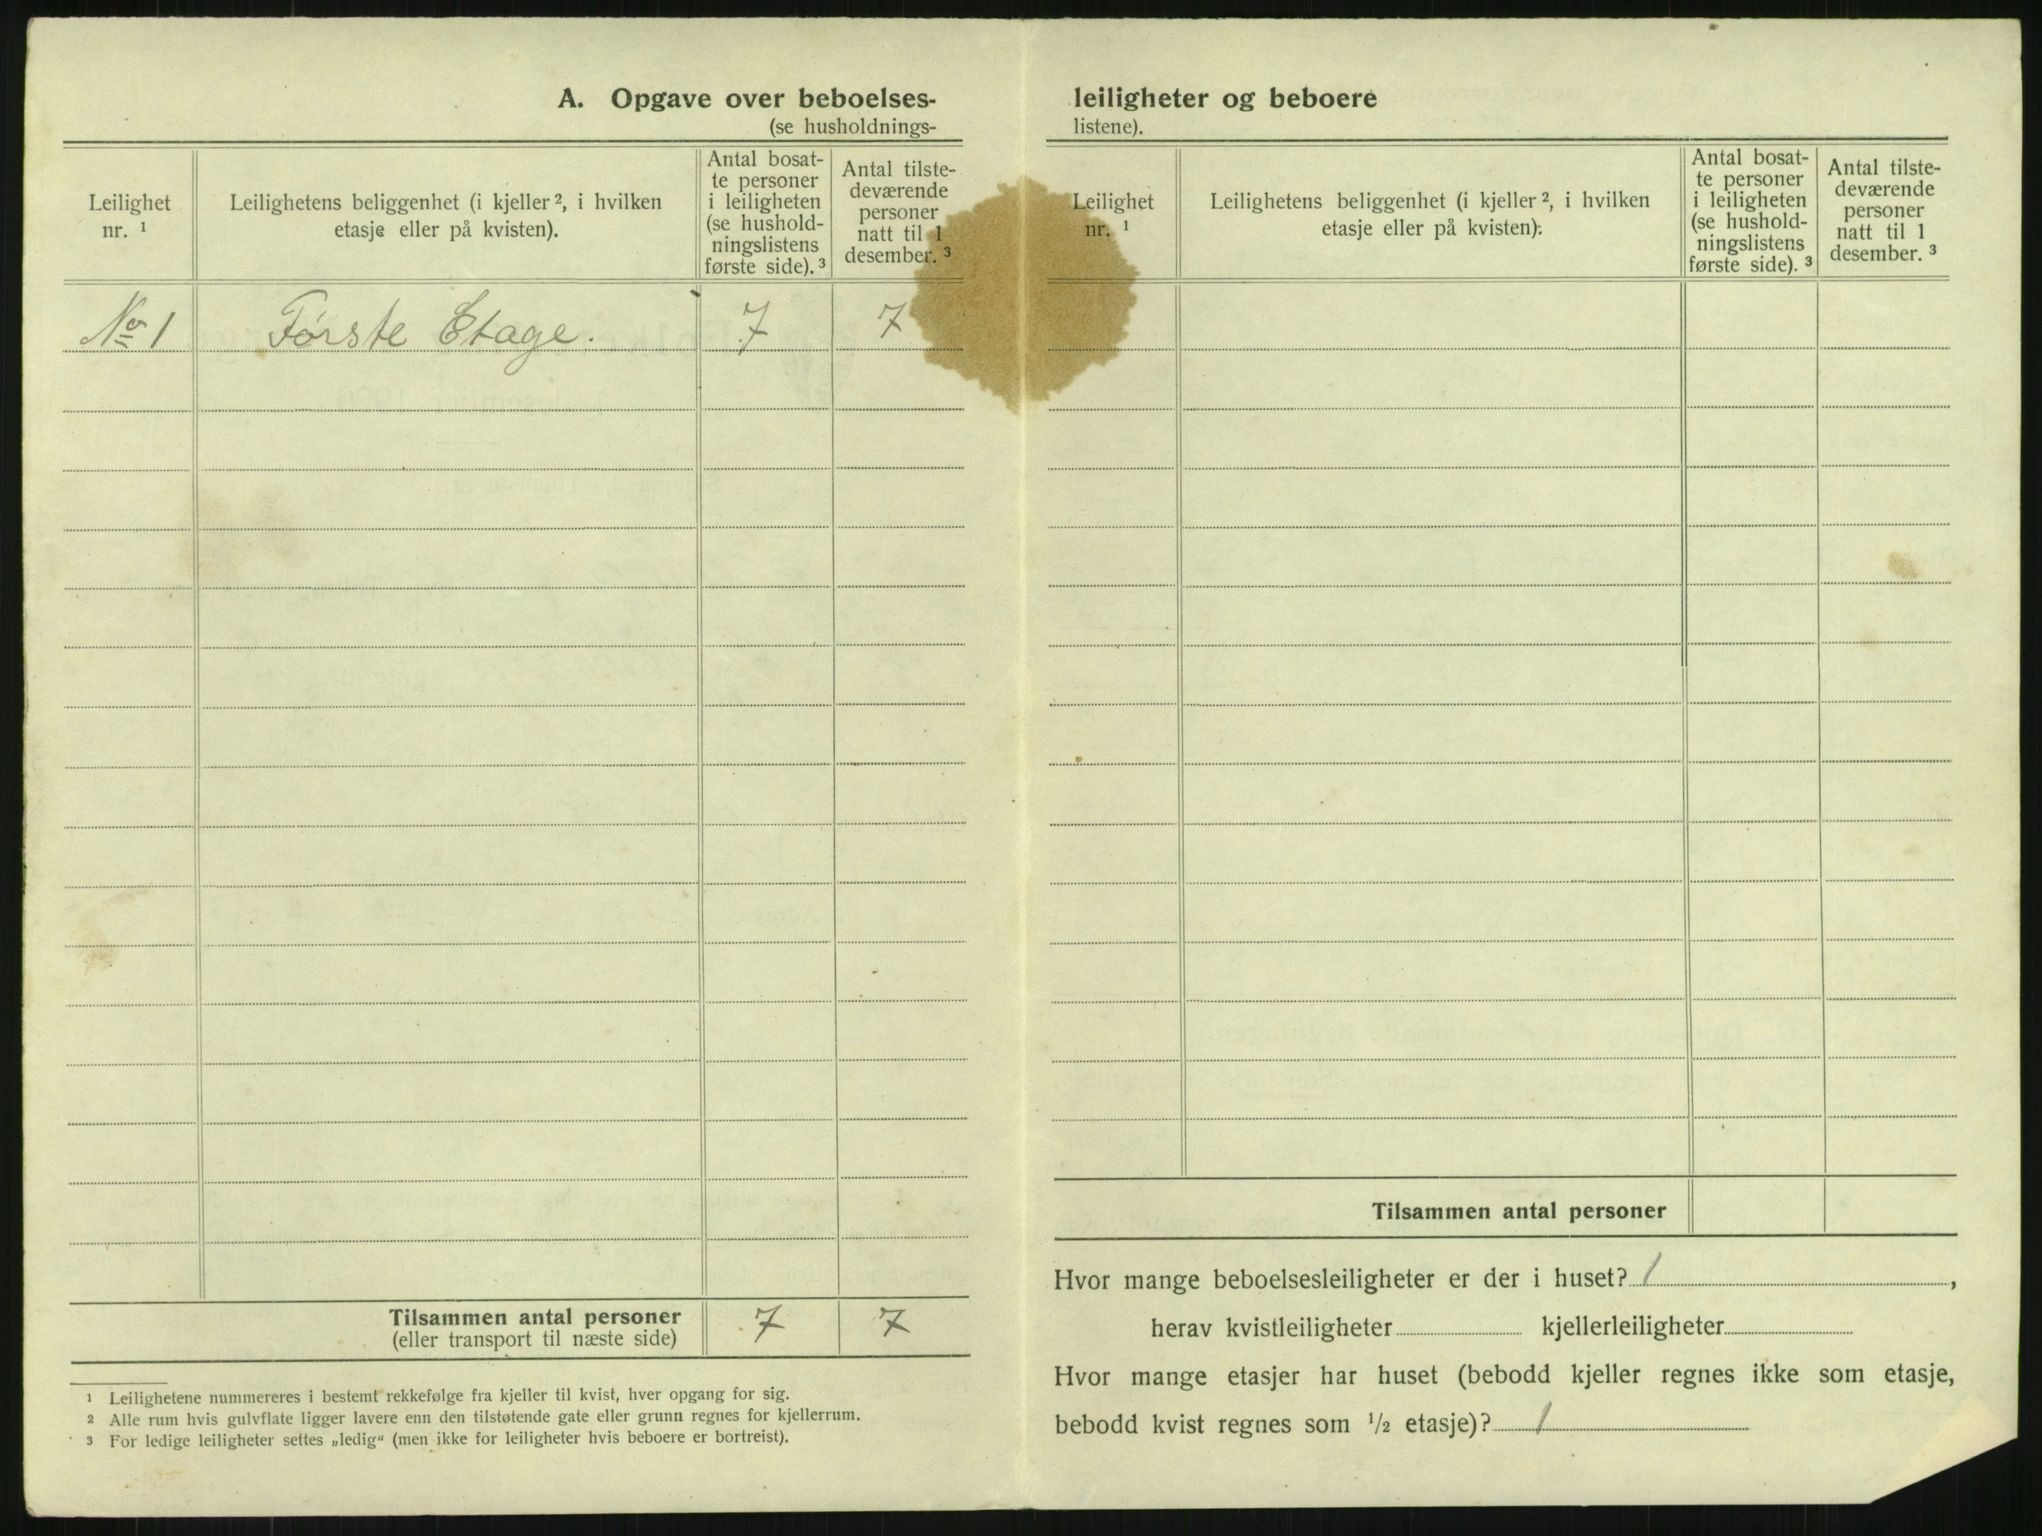 A. Opgave over beboelses-
(se husholdnings-
Leilighet
nr. ¹
Leilighetens beliggenhet (i kjeller ², i hvilken
etasje eller på kvisten).
Antal bosat-
te personer
i leiligheten
(se hushold-
ningslistens
første side). ³
Antal tilste-
deværende
personer
natt til 1
desember. ³
No 1 Første Etage. 7 7
Tilsammen antal personer 7 7
(eller transport til næste side)
¹ Leilighetene nummereres i bestemt rekkefølge fra kjeller til kvist, hver opgang for sig.
² Alle rum hvis gulvflate ligger lavere enn den tilstøtende gate eller grunn regnes for kjellerrum.
³ For ledige leiligheter settes „ledig“ (men ikke for leiligheter hvis beboere er bortreist).
leiligheter og beboere
listene).
Leilighet
nr. ¹
Leilighetens beliggenhet (i kjeller ², i hvilken
etasje eller på kvisten).
Antal bosat-
te personer
i leiligheten
(se hushold-
ningslistens
første side). ³
Antal tilste-
deværende
personer
natt til 1
desember. ³
Tilsammen antal personer
Hvor mange beboelsesleiligheter er der i huset? 1 ,
herav kvistleiligheter kjellerleiligheter
Hvor mange etasjer har huset (bebodd kjeller regnes ikke som etasje,
bebodd kvist regnes som ½ etasje)? 1